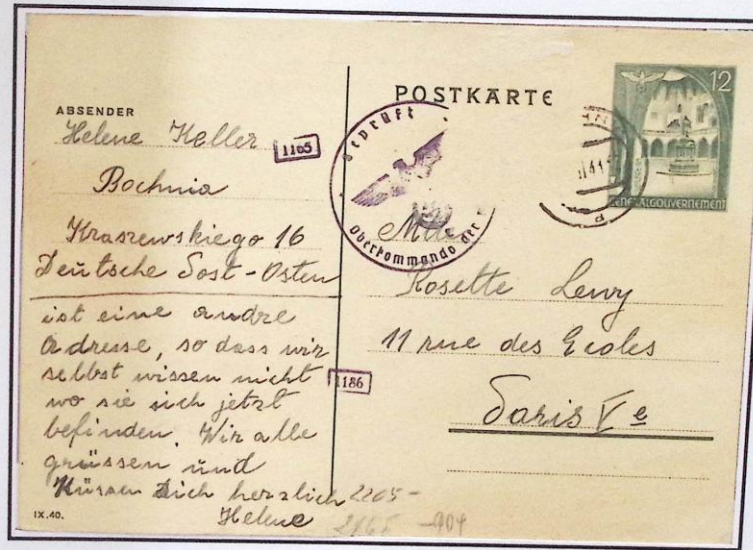 POSTKARTE
ABSENDER
Helene Keller
1165
Bochnia
Kraszewskiego 16
Deutsche Post-Osten
ist eine andre
Adresse, so dass wir
selbst wissen nicht
wo sie sich jetzt
befinden. Wir alle
grüssen und
Küssen Dich herzlich
Helene
IX.40.
1186
geprüft
Oberkommando der
12
GENERALGOUVERNEMENT
Rosette Lewy
11 rue des Ecoles
Paris Ve
2205-
-904